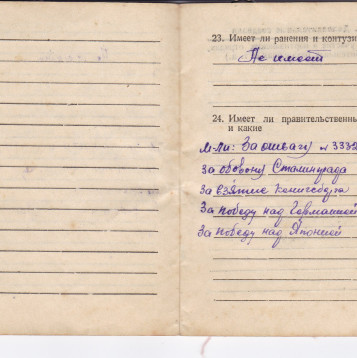 23. Имеет ли ранения и контузи
Не имеет
24. Имеет ли правительственны
и какие
М-ли: За отвагу № 3332
За оборону Сталинграда
За взятие Кенигсберга
За победу над Германией
За победу над Японией